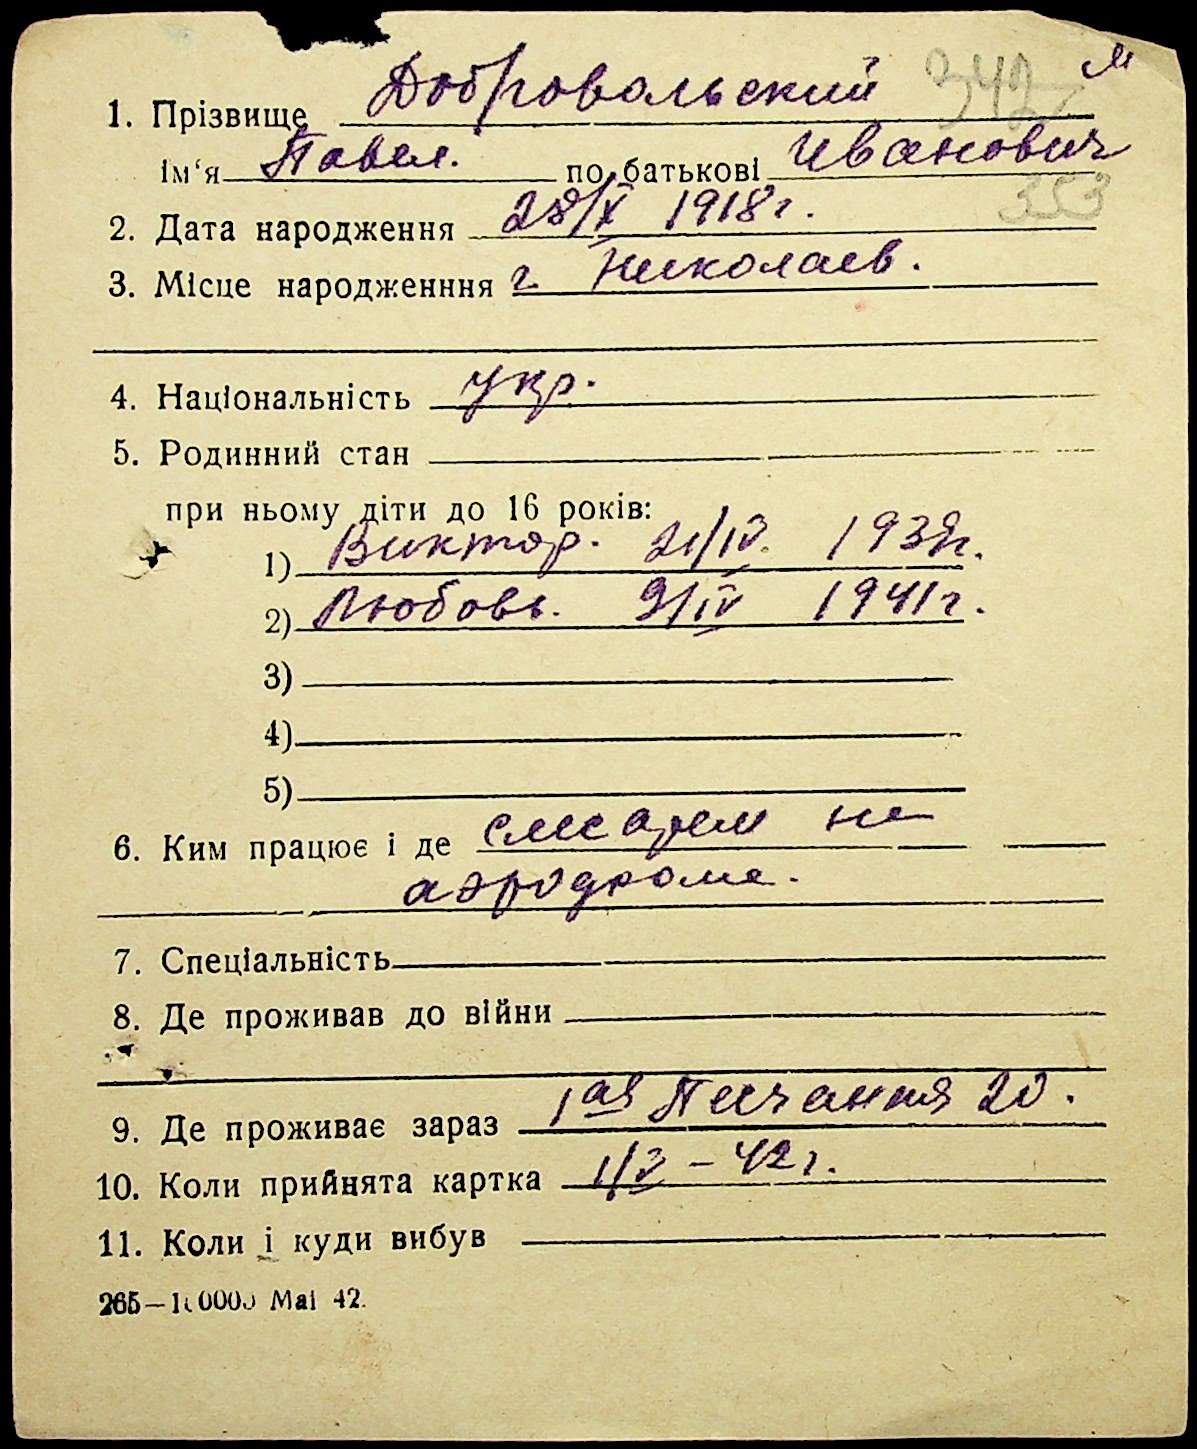 342 м
1. Прізвище Добровольский
ім‘я Павел. по батькові Иванович
353
2. Дата народження 28/X 1918г.
3. Місце народженння г. Николаев.
4. Національність укр.
5. Родинний стан
при ньому діти до 16 років:
1) Виктор. 21/IV. 1939г.
2) Любовь. 9/IV 1941г.
3)
4)
5)
6. Ким працює і де слесарем на
аэродроме.
7. Спеціальність
8. Де проживав до війни
9. Де проживає зараз 1ая Песчанная 20.
10. Коли прийнята картка 1/X – 42г.
11. Коли і куди вибув
265—100000 Mai 42.